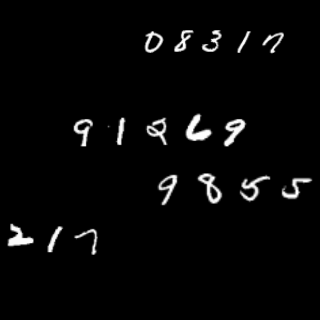 08317
91269
9855
217